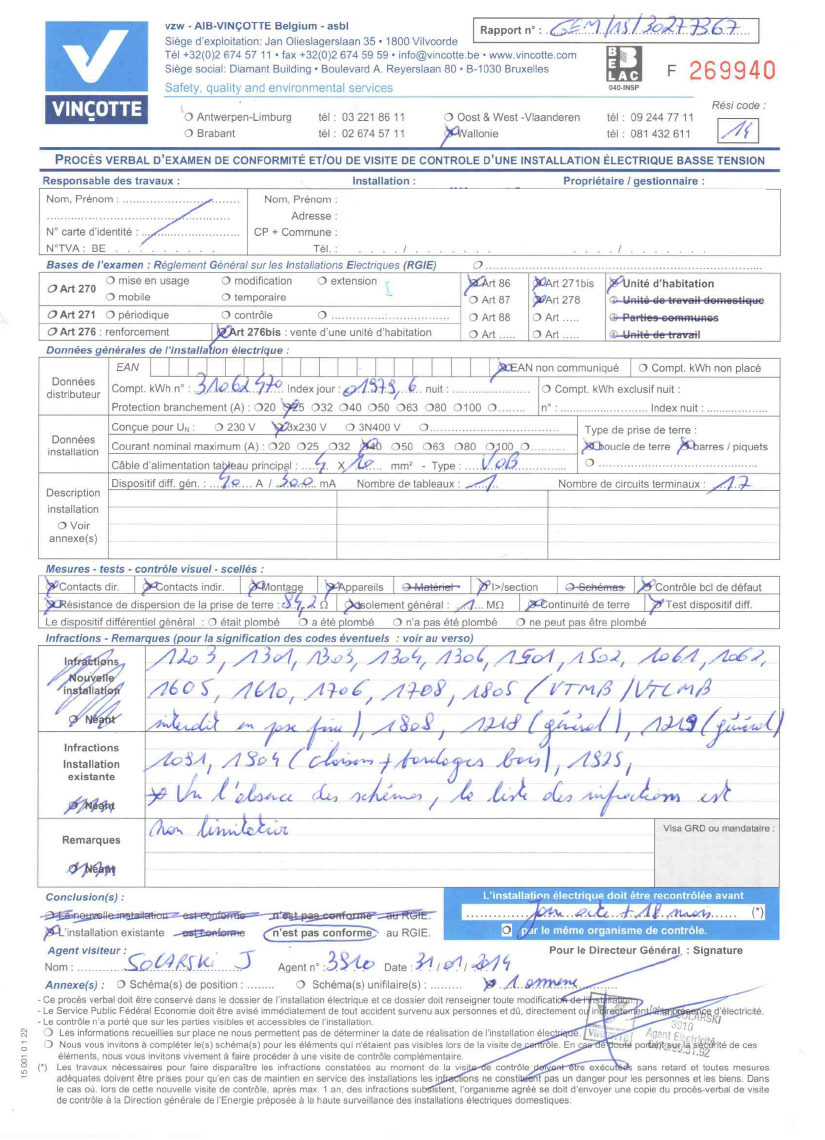 vzw - AIB-VINÇOTTE Belgium - asbl
Siège d'exploitation: Jan Olieslagerslaan 35 • 1800 Vilvoorde
Tél +32(0)2 674 57 11 • fax +32(0)2 674 59 59 • info@vincotte.be • www.vincotte.com
Siège social: Diamant Building • Boulevard A. Reyerslaan 80 • B-1030 Bruxelles
Safety, quality and environmental services
VINÇOTTE
Rapport n° : GEM/15/30277367
BELAC
040-INSP
F 269940
Rési code :
14
Antwerpen-Limburg tél : 03 221 86 11 Oost & West -Vlaanderen tél : 09 244 77 11
Brabant tél : 02 674 57 11 Wallonie tél : 081 432 611
PROCÈS VERBAL D'EXAMEN DE CONFORMITÉ ET/OU DE VISITE DE CONTROLE D'UNE INSTALLATION ÉLECTRIQUE BASSE TENSION
Responsable des travaux : Installation : Propriétaire / gestionnaire :
Nom, Prénom : Nom, Prénom :
Adresse :
N° carte d'identité : CP + Commune :
N°TVA : BE Tél. : / /
Bases de l'examen : Règlement Général sur les Installations Electriques (RGIE)
Art 270 mise en usage modification extension Art 86 Art 271bis Unité d'habitation
mobile temporaire Art 87 Art 278 Unité de travail domestique
Art 271 périodique contrôle Art 88 Art ..... Parties communes
Art 276 : renforcement Art 276bis : vente d'une unité d'habitation Art ..... Art ..... Unité de travail
Données générales de l'installation électrique :
Données distributeur
EAN EAN non communiqué Compt. kWh non placé
Compt. kWh n° : 31062470 Index jour : 01979,6 nuit : Compt. kWh exclusif nuit :
Protection branchement (A) : 20 25 32 40 50 63 80 100 n° : Index nuit :
Données installation
Conçue pour UN : 230 V 3x230 V 3N400 V Type de prise de terre :
Courant nominal maximum (A) : 20 25 32 40 50 63 80 100 boucle de terre barres / piquets
Câble d'alimentation tableau principal : 4 X 10 mm² - Type : VOB
Description installation
Voir annexe(s)
Dispositif diff. gén. : 40 A / 300 mA Nombre de tableaux : 1 Nombre de circuits terminaux : 17
Mesures - tests - contrôle visuel - scellés :
Contacts dir. Contacts indir. Montage Appareils Matériel I>/section Schémas Contrôle bcl de défaut
Résistance de dispersion de la prise de terre : 84,2 Ω Isolement général : 1 MΩ Continuité de terre Test dispositif diff.
Le dispositif différentiel général : était plombé a été plombé n'a pas été plombé ne peut pas être plombé
Infractions - Remarques (pour la signification des codes éventuels : voir au verso)
Infractions Nouvelle installation
Néant
1203, 1301, 1303, 1304, 1306, 1501, 1502, 1061, 1062,
1605, 1610, 1706, 1708, 1805 (VTMB/VTLMB
interdit en pose fixe), 1808, 1218 (général), 1219 (général)
Infractions Installation existante
Néant
1031, 1904 (cloison + bardages bois), 1925,
* Vu l'absence des schémas, la liste des infractions est
Remarques
Néant
non limitative
Visa GRD ou mandataire :
Conclusion(s) :
La nouvelle installation est conforme n'est pas conforme au RGIE.
L'installation existante est conforme n'est pas conforme au RGIE.
L'installation électrique doit être recontrôlée avant
Jour acte + 18 mois (*)
par le même organisme de contrôle.
Agent visiteur :
Nom : SOLARSKI J Agent n° : 3910 Date : 31/01/2014
Pour le Directeur Général : Signature
Annexe(s) : Schéma(s) de position : Schéma(s) unifilaire(s) : 1 annexe
- Ce procès verbal doit être conservé dans le dossier de l'installation électrique et ce dossier doit renseigner toute modification de l'installation.
- Le Service Public Fédéral Economie doit être avisé immédiatement de tout accident survenu aux personnes et dû, directement ou indirectement, à la présence d'électricité.
- Le contrôle n'a porté que sur les parties visibles et accessibles de l'installation.
Les informations recueillies sur place ne nous permettent pas de déterminer la date de réalisation de l'installation électrique.
Nous vous invitons à compléter le(s) schéma(s) pour les éléments qui n'étaient pas visibles lors de la visite de contrôle. En cas de doute portant sur la sécurité de ces
éléments, nous vous invitons vivement à faire procéder à une visite de contrôle complémentaire.
(*) Les travaux nécessaires pour faire disparaître les infractions constatées au moment de la visite de contrôle doivent être exécutés sans retard et toutes mesures
adéquates doivent être prises pour qu'en cas de maintien en service des installations les infractions ne constituent pas un danger pour les personnes et les biens. Dans
le cas où, lors de cette nouvelle visite de contrôle, après max. 1 an, des infractions subsistent, l'organisme agréé se doit d'envoyer une copie du procès-verbal de visite
de contrôle à la Direction générale de l'Energie préposée à la haute surveillance des installations électriques domestiques.
SOLARSKI
3910
Agent Electricité
15 001 0 1 22